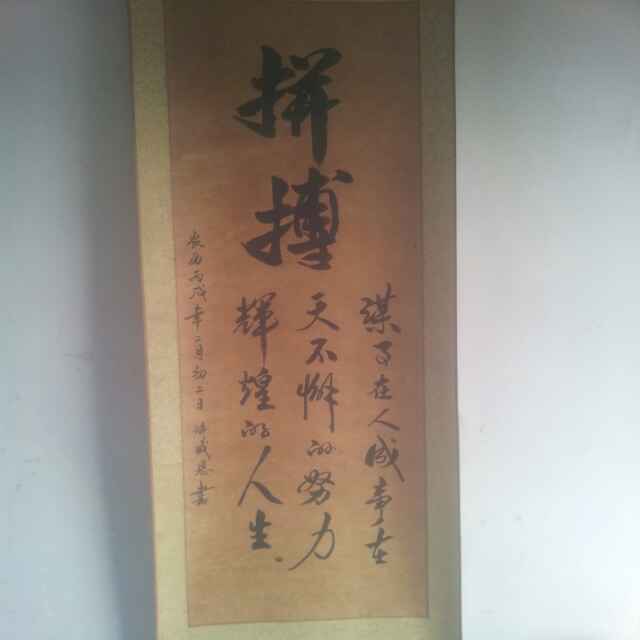 拼搏
谋事在人成事在
天不懈的努力
辉煌的人生
农历丙戌年二月初二日 书